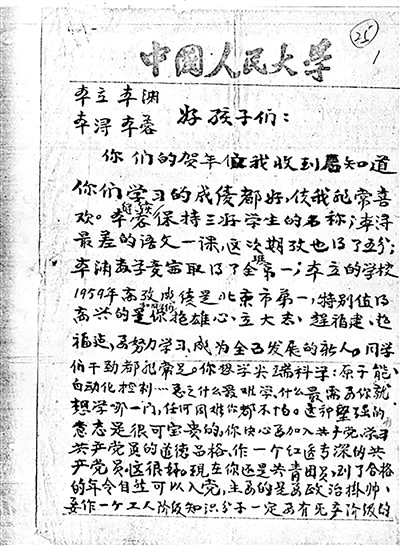 25
1
中国人民大学
李立 李渊
李浔 李蓉 好孩子们：
你们的贺年信我收到后知道
你们学习的成绩都好，使我非常喜
欢。李蓉继续保持三好学生的名称；李浔
最差的语文一课，这次期考也得了五分；
李渊数子竞赛取得了全班第一；李立的学校
1959年高考成绩是北京市第一，特别值得
高兴的是你抱雄心、立大志、赶福建、超
福建，要努力学习，成为全面发展的新人。同学
们干劲都非常足。你想学尖端科学：原子能、
自动化控制…总之什么最难学，什么最需要你就
想学哪一门，任何困难你都不怕。这种坚强的
意志是很可宝贵的，你决心要加入共产党，学习
共产党员的道德品格，作一个红透专深的共
产党员，这很好。现在你还是共青团员，到了合格
的年令自然可以入党，主要的是要政治挂帅，
要作一个工人阶级知识分子一定要有无产阶级的